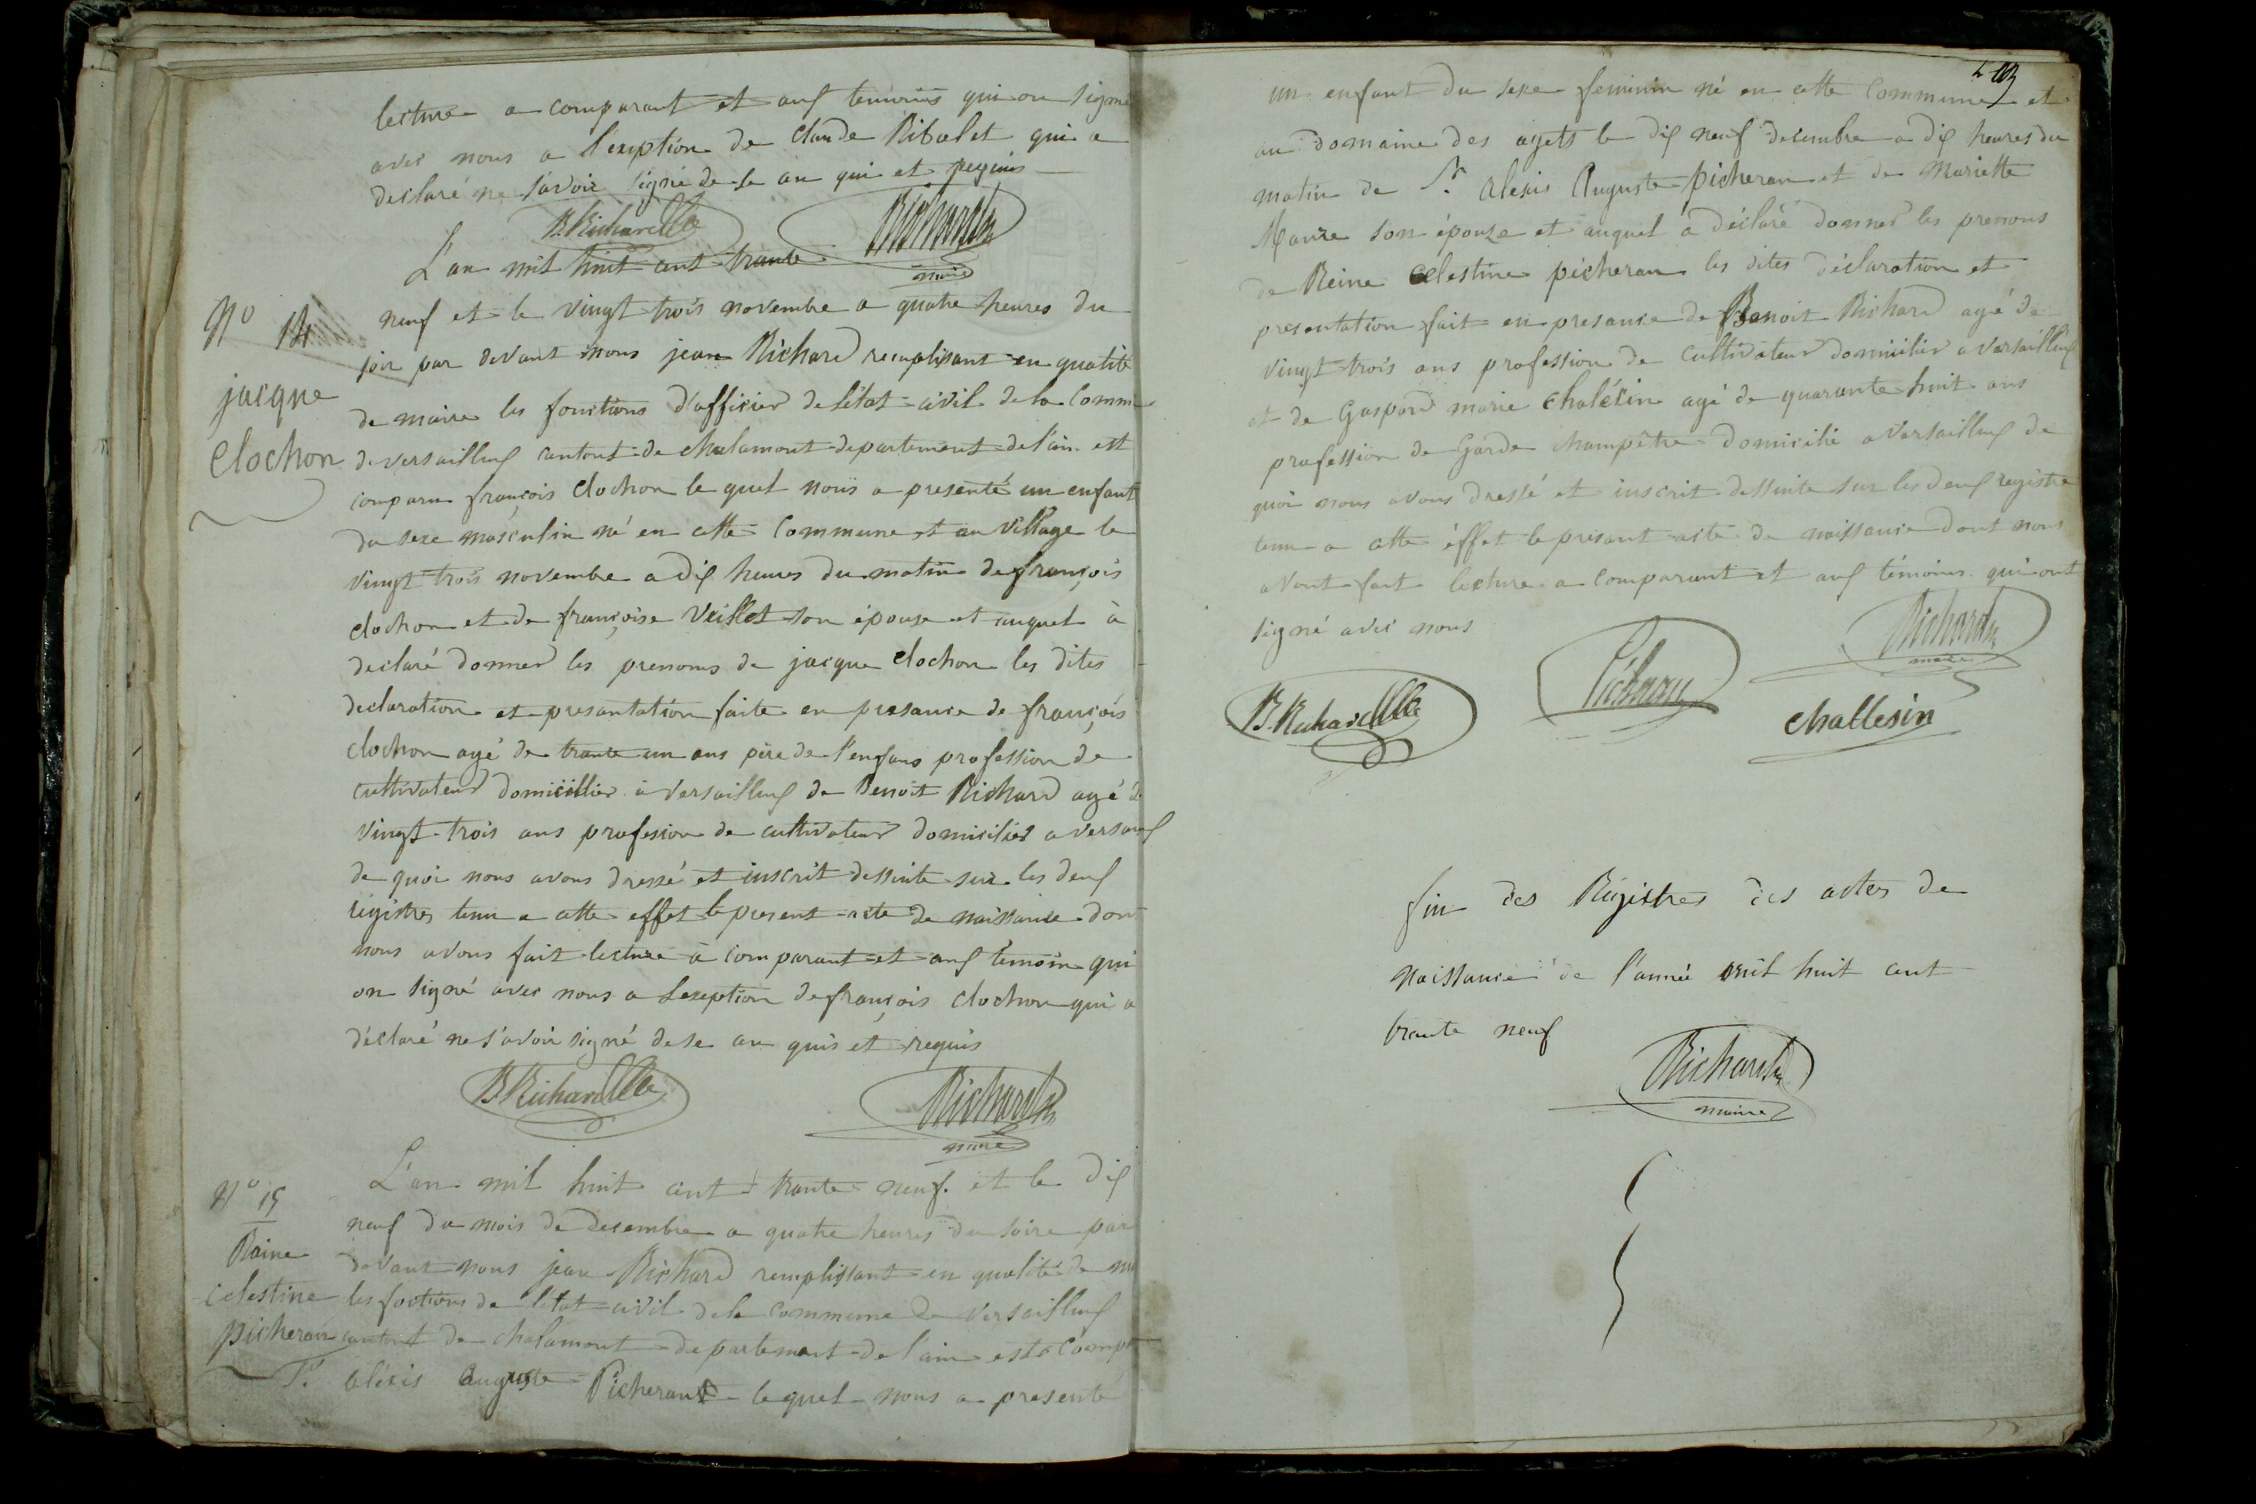 lecture a comparant et auf temoins qui on signé
avec nous a l'exeption de Claude Ribolet qui a
declaré ne savoir signé de se an qui et requis
B. Richard
Richard
maire
L'an mil huit cent trante
neuf et le vingt trois novembre a quatre heures du
soir par devant nous jean Richard remplisant en qualité
de maire les fonctions d'afficier de l'état civil de la Comm
de versailleuf cantont de chalamont departement de l'ain est
comparu françois Clochon le quel nous a presenté un enfant
du sexe masculin né en cette Commune et au village le
vingt trois novembre a dix heures du matin de françois
clochon et de françoise Veillet son épouse et auquel à
declaré donner les prenoms de jacque clochon les dites
declaration et presantation faite en presance de françois
clochon agé de trante un ans père de l'enfans profession de
cultivateur domicillier à versailleuf de Benoit Richard agé d
vingt trois ans profesion de cultivateur domicilier a versai
de quoi nous avons dressé et inscrit dessuite sur les deuf
régistres tenu a cette effet le present acte de naissance don
nous avons fait lecture à comparant et auf témoin qui
on signé avec nous a lexeption de françois clochon qui a
déclaré ne savoir signé de se an quis et requis
B Richard
Richard
maire
N° 14
jacque
Clochon
L'an mil huit cent trante neuf et le dix
neuf du mois de decembre a quatre heures du soire par
devant nous jean Richard remplissant en qualité de m
les foctions de letat civil de la commune de versailleuf
cantont de chalamont departement de l'ain est comp
Sr. aléxis auguste Picherant le quel nous a presenté
N° 15
Raine
celestine
picheran
un enfant du sexe feminin né en cette Commune et
au domaine des ayets le dix neuf decembre a dix heures du
matin de Sr. alexis Auguste picheran et de Mariette
Maure son épouze et auquel a déclaré donner les prenoms
de Reine celestine picheran les dites déclaration et
presentation fait en presance de Benoit Richard agé de
vingt trois ans profession de cultivateur domicilier a versailleuf
et de Gaspard marie chalésin agé de quarante huit ans
profession de Garde champêtre domicilié a versailleuf de
quoi nous avons dressé et inscrit dessuite sur les deuf registre
tenu a cette éffet le présant acte de naissance dont nous
avont fait lecture a comparant et auf témoins qui ont
signé avec nous
Richard
maire
B. Richard
Picheran
challesin
fin des Régistres des actes de
naissance de l'année mil huit cent
trante neuf
Richard
maire